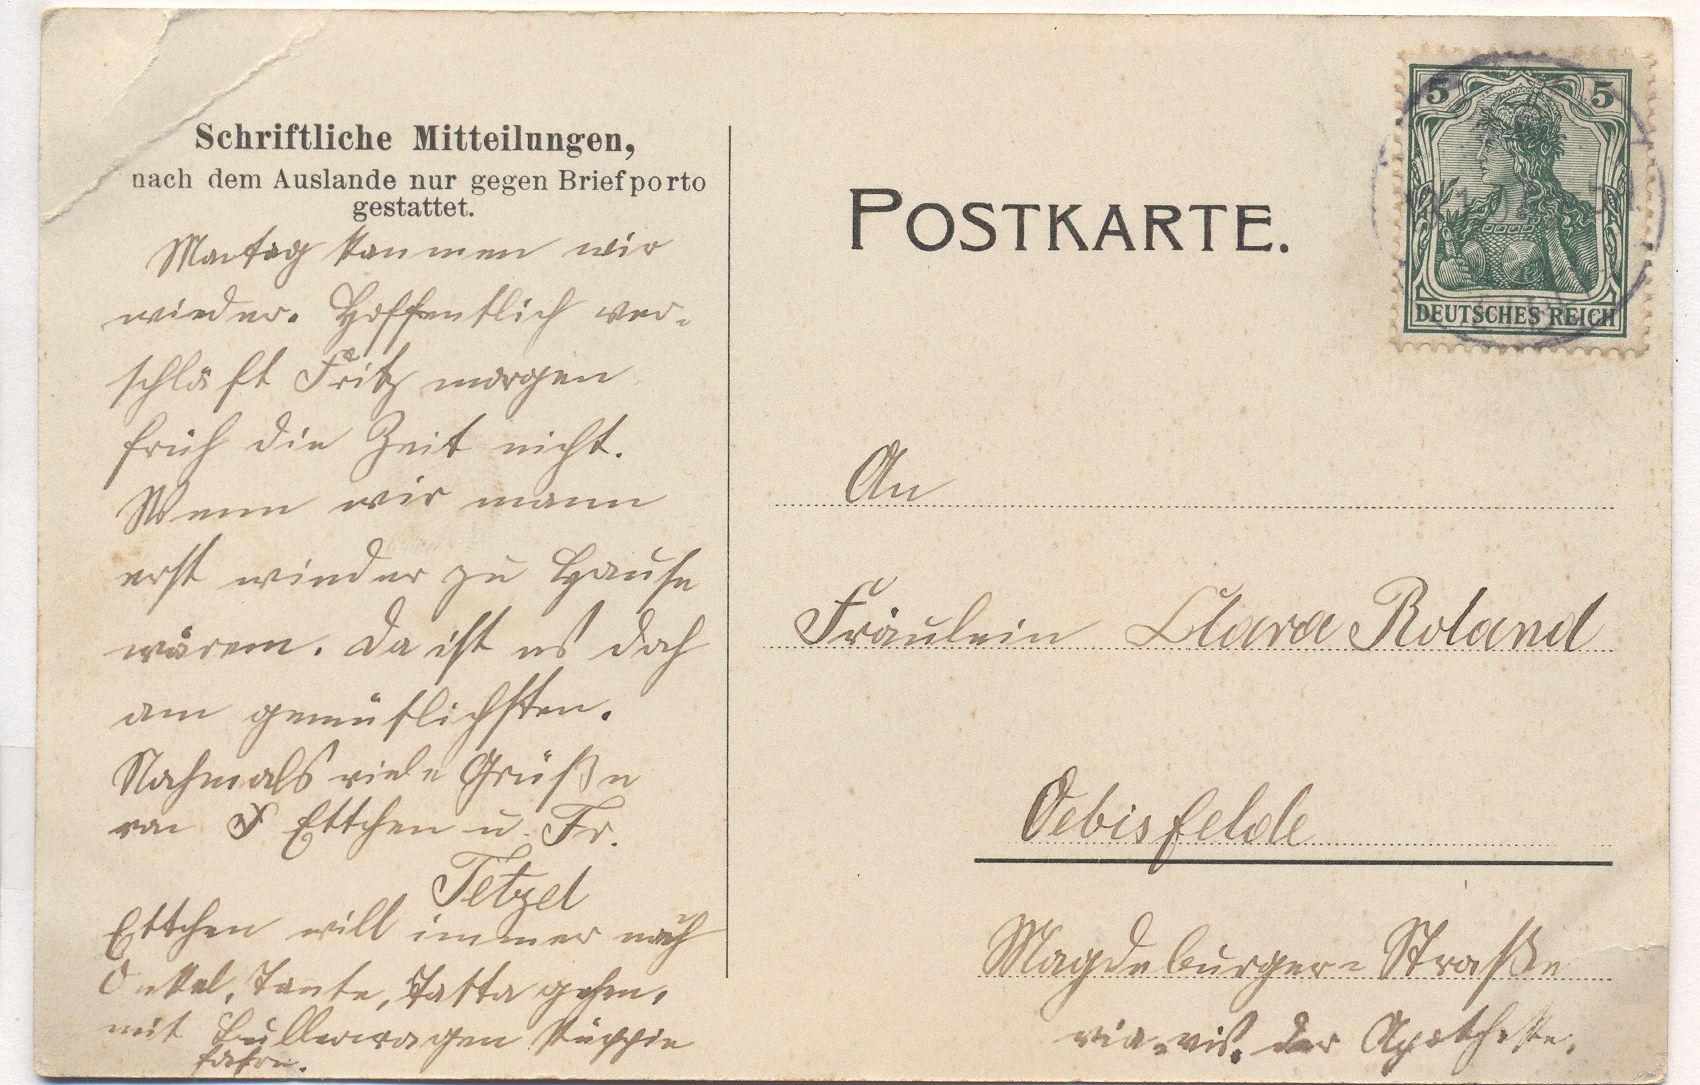 Schriftliche Mitteilungen,
nach dem Auslande nur gegen Briefporto
gestattet.
Montag kommen wir
wieder. Hoffentlich ver-
schläft Fritz morgen
früh die Zeit nicht.
Wenn wir mann
erst wieder zu Hause
wären. Da ist es doch
am gemütlichsten.
Nochmals viele Grüße
von Ettchen u. Fr.
Tetzel
Ettchen will immer nach
Onkel, Tante, Tatta gehen,
mit Bullerwagen
fahren.
POSTKARTE.
5 5
DEUTSCHES REICH
An
Fräulein Clara Roland
Oebisfelde
Magdeburger-Straße
vis-vis. der Apotheke.